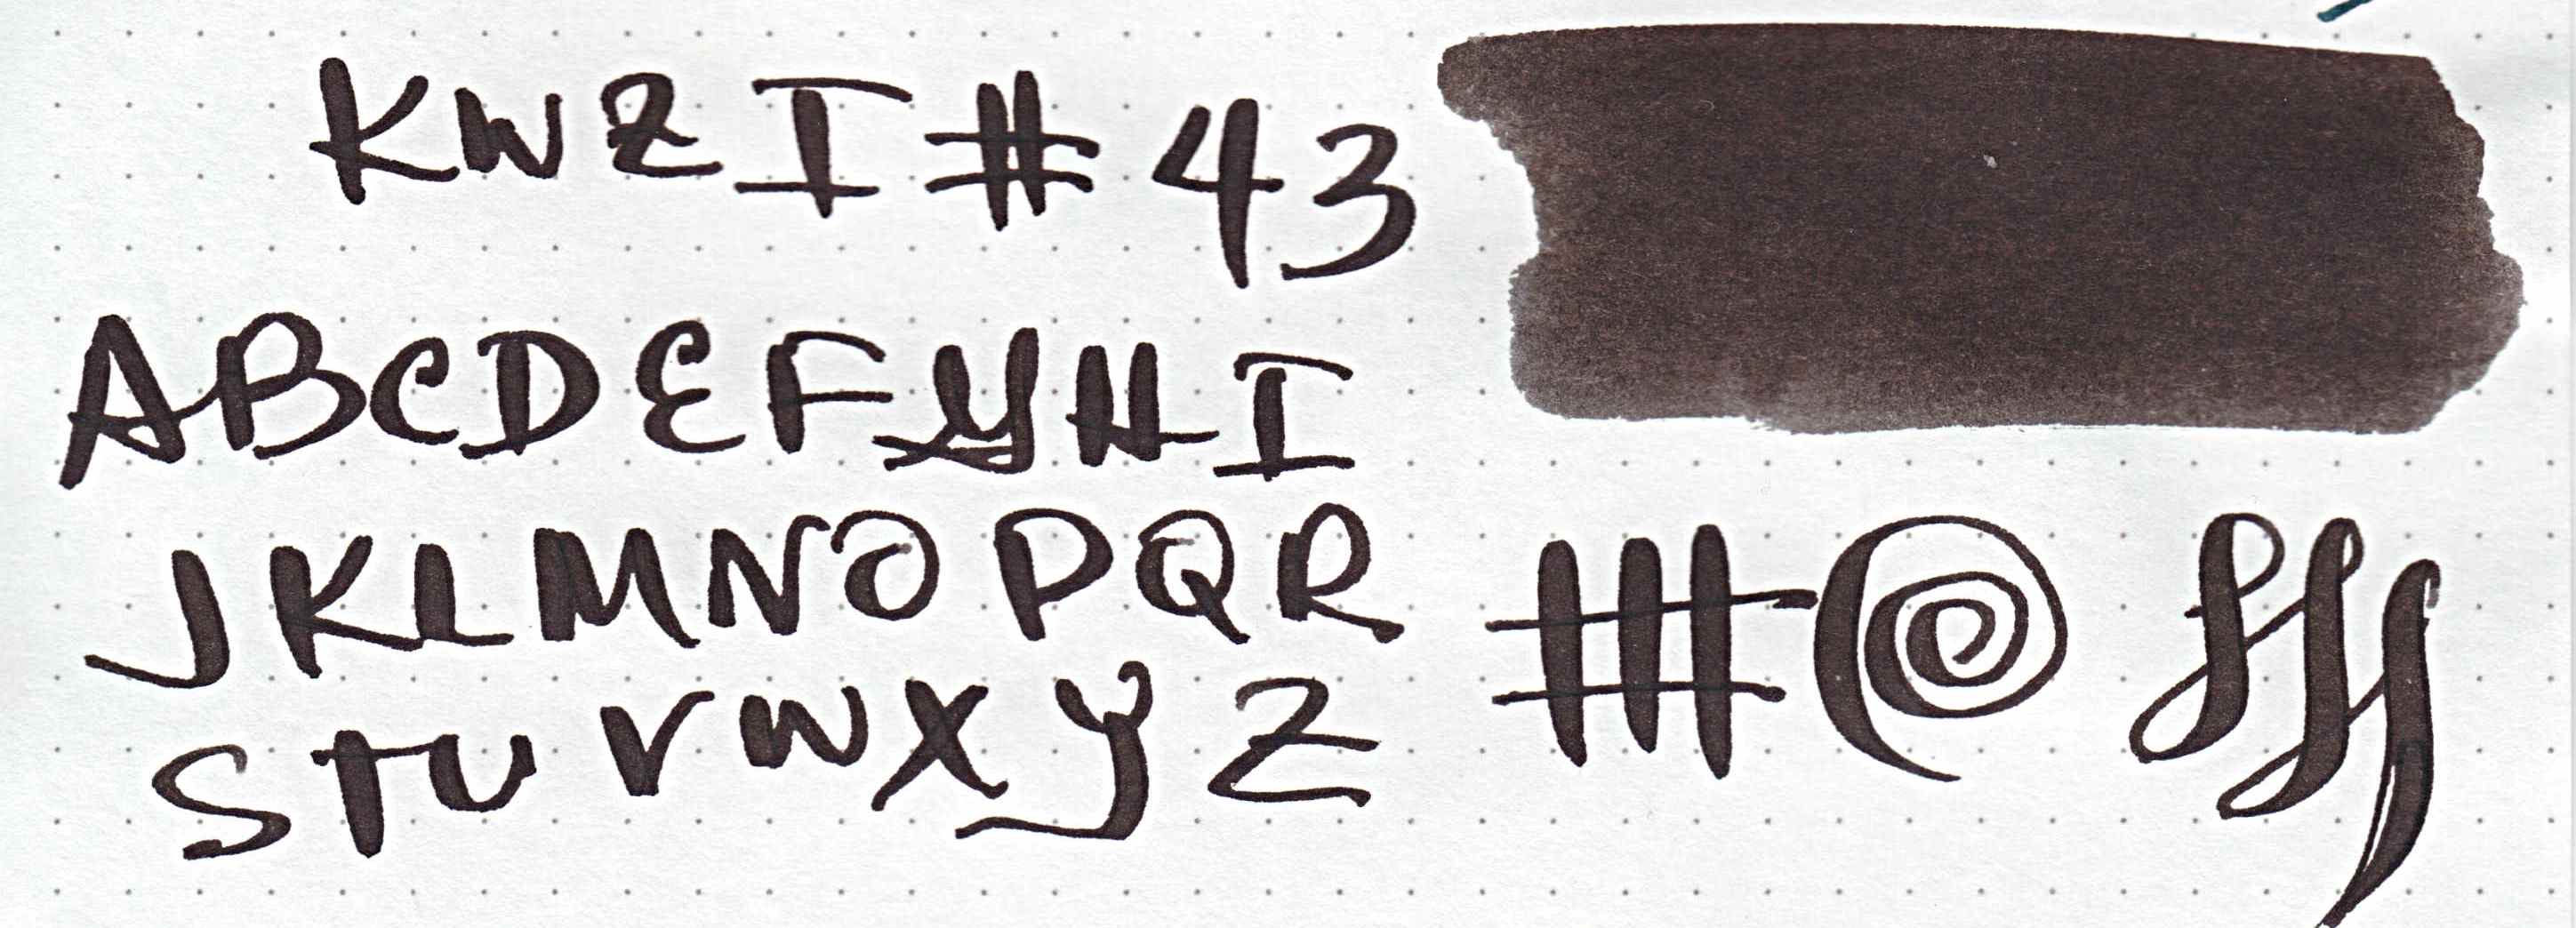 KWZI #43
ABCDEFGHI
JKLMNOPQR
STUVWXYZ